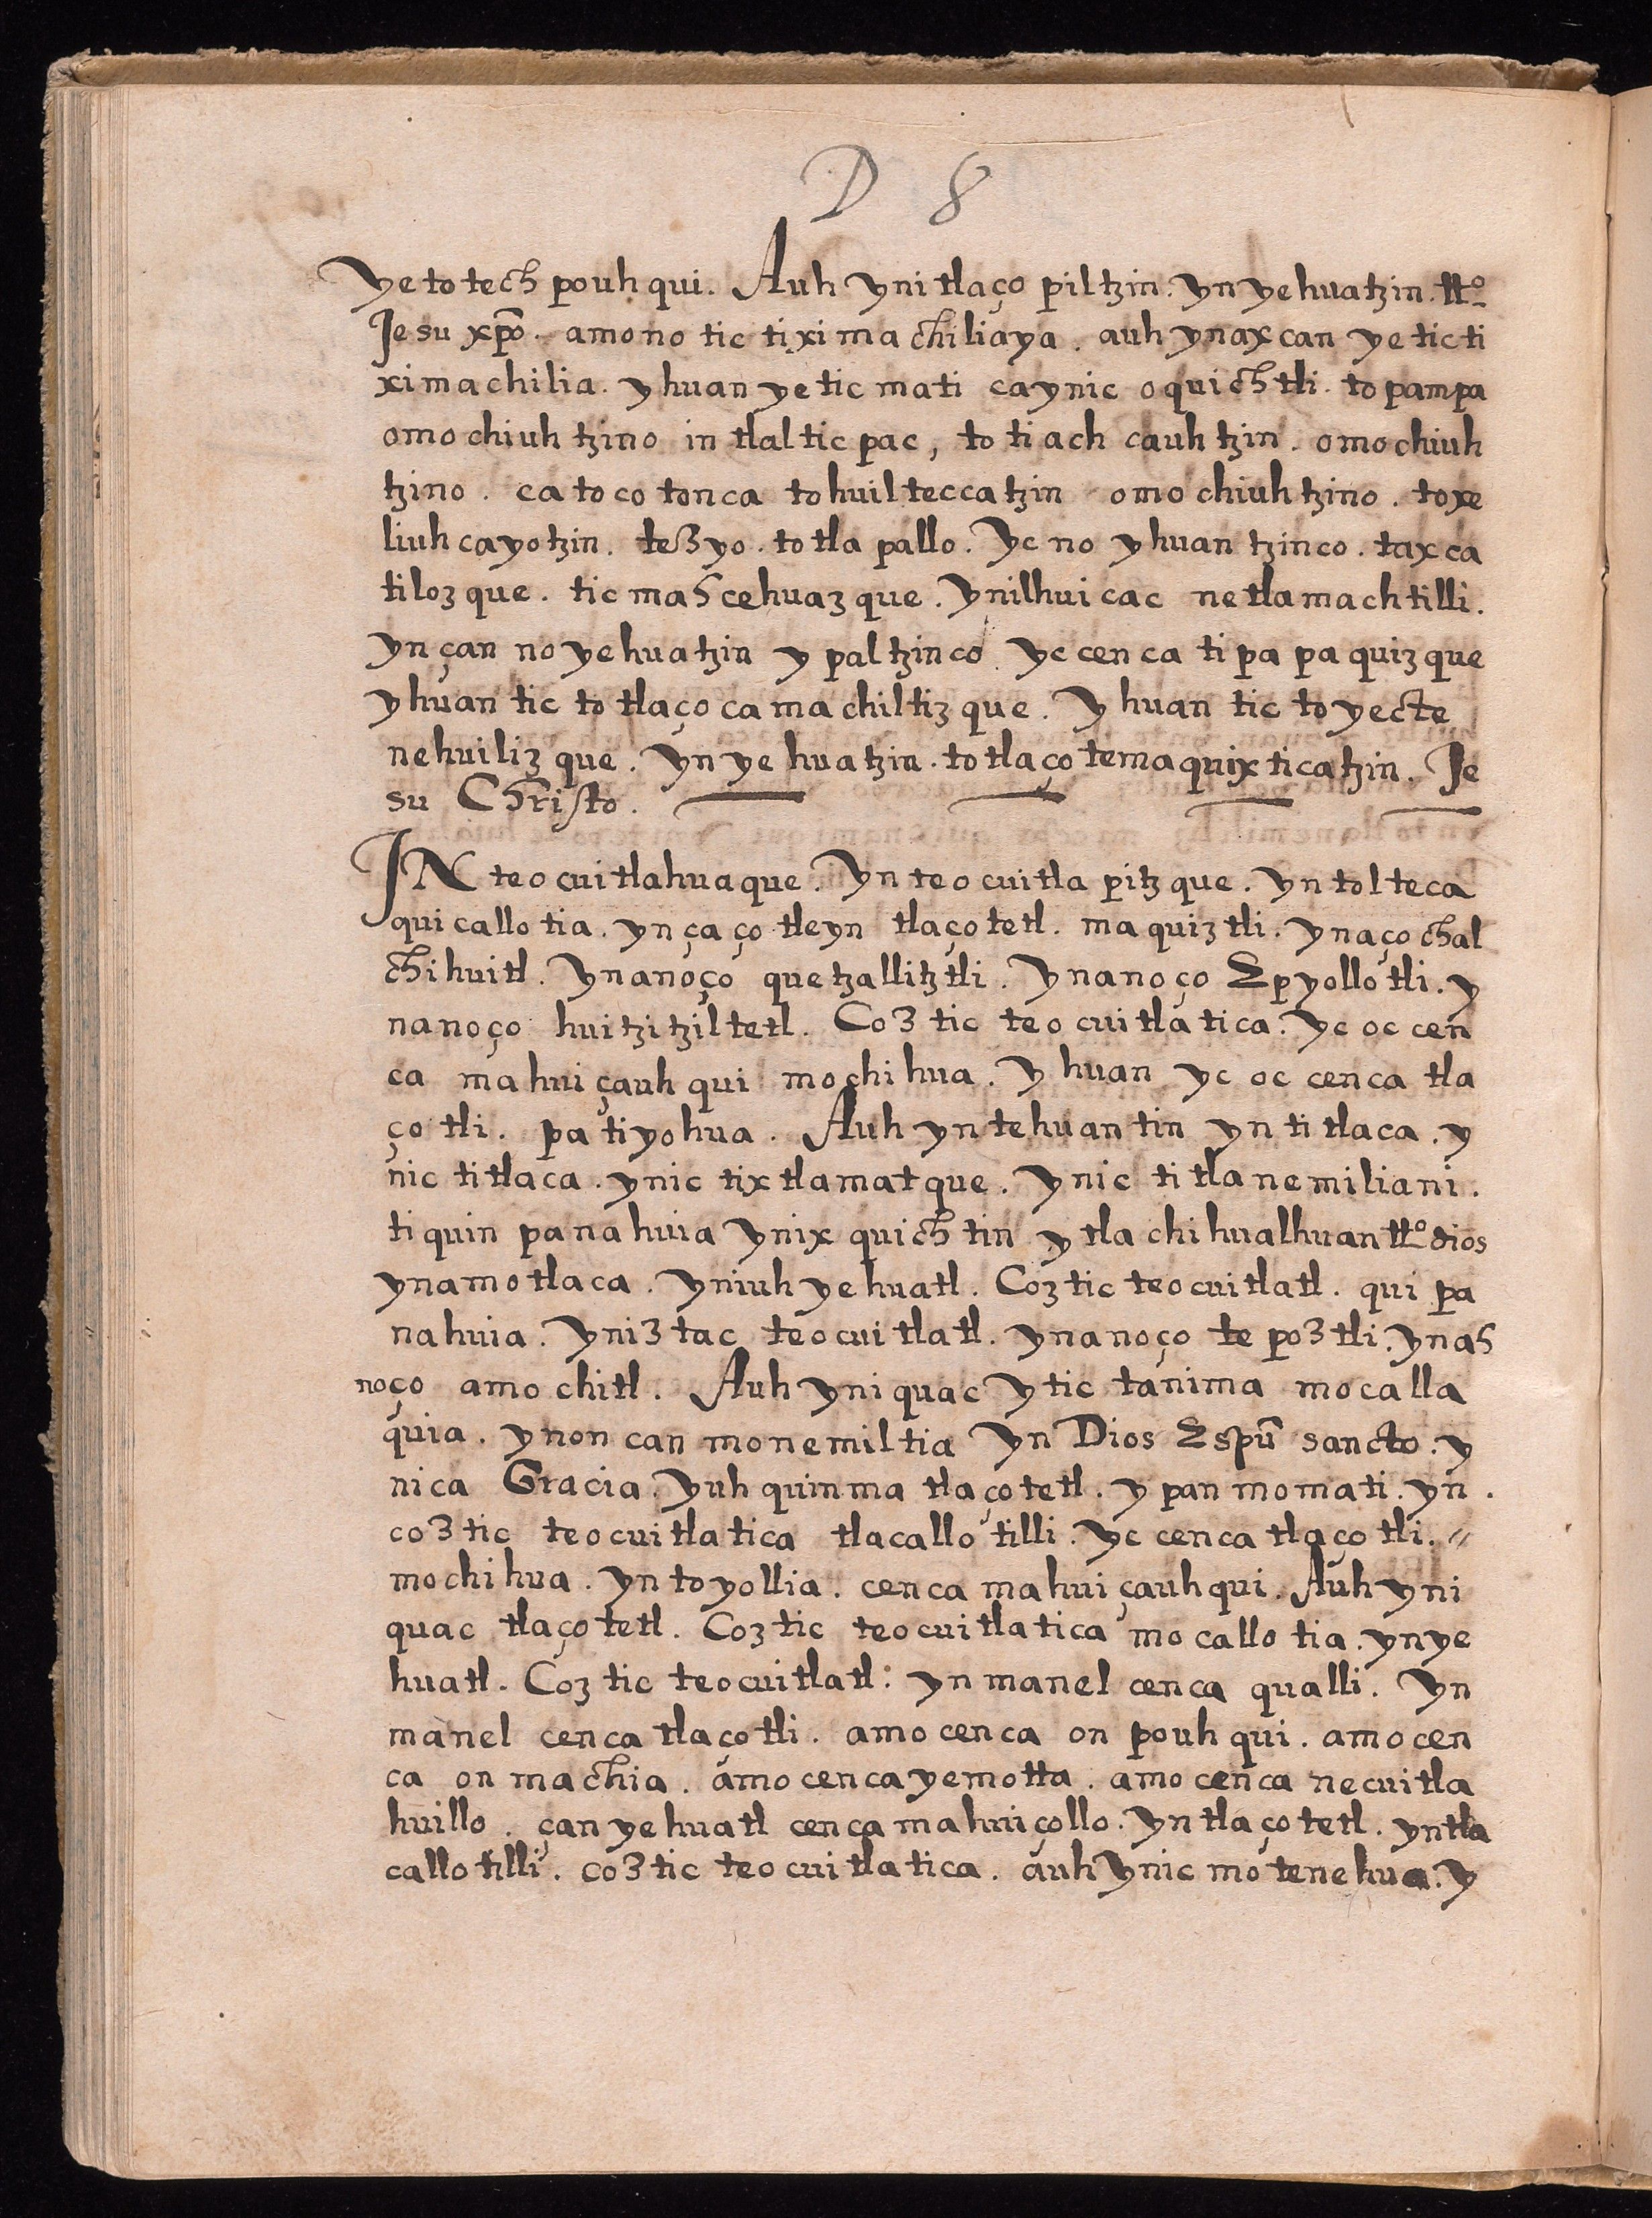 D 8
ye to tech pouh qui. Auh yni tlaço piltzin. yn yehuatzin. tto
Jesu xpo. amono tic tixi machiliaya. auh ynaxcan ye tic ti
ximachilia. yhuan ye tic mati caynic oquichtli. topampa
omochiuh tzino in tlal tic pac, to ti ach cauh tzin. omochiuh
tzino. ca to co ton ca tohuilteccatzin omo chiuh tzino. toxe
liuh cayotzin. te3yo. to tla pallo. Yc no yhuan tzinco. taxca
tiloz que. tic mahcehuaz que. Ynilhuicac netlamachtilli.
yn çan no yehuatzin y paltzinco yc cen ca ti pa pa quiz que
yhuan tic to tlaço ca ma chiltiz que. Y huan tic to yecte
nehuiliz que. Yn ye huatzin. to tlaço tema quix ticatzin. Je
su Christo.
IN teo cuitlahuaque. Yn teo cuitla pitz que. yn tol teca
qui callo tia. yn ça ço tleyn tlaço tetl. ma quiz tli. ynaço chal
chihuitl. Ynanoço quetzalliztli. Ynanoço Epyollotli. y
nanoço huitzitziltetl. Co3 tic teo cuitla tica. Yc oc cen
ca mahuiçauh qui mochihua. Y huan yc oc cenca tla
ço tli. pa tiyohua. Auh yn tehuan tin yn ti tlaca. y
nic titlaca. ynic tix tlamat que. Ynic ti tla nemiliani.
ti quin panahuia ynix quich tin y tla chihualhuan tto dios
ynamo tlaca. Yniuh ye huatl. Coz tic teocuitlatl. qui pa
nahuia. Yni3 tac teocuitlatl. ynanoço te po3 tli. ynah
noço amo chitl. Auh yni quac ytic tanima mocalla
quia. ynon can monemiltia Yn Dios Espu sancto. y
nica Gracia. Yuh quinma tlaço tetl. y pan momati. yn.
co3 tic teocuitlatica tlacallo tilli. Yc cenca tlaço tli.
mochihua. Yn toyollia. cenca mahuiçauhqui. Auh yni
quac tlaço tetl. Coz tic teocuitlatica mo callo tia. ynye
huatl. Coz tic teocuitlatl: yn manel cenca qualli. Yn
manel cenca tlaço tli. amo cenca on pouh qui. amo cen
ca on machia. amo cenca yemotta. amo cenca necuitla
huillo. çan yehuatl cenca mahuiçollo. Yn tlaço tetl. yntla
callo tilli. co3 tic teocuitlatica. auh ynic mo tenehua. y